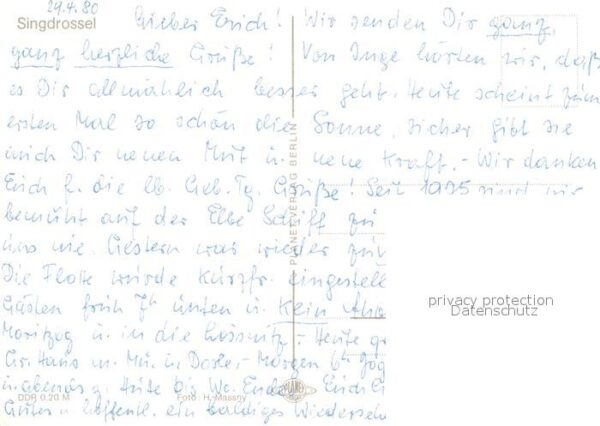 29.4.80
Singdrossel
Lieber Erich! Wir senden Dir ganz,
ganz herzliche Grüße! Von Inge hörten wir, daß
es Dir allmählich besser geht. Heute scheint zum
ersten Mal so schön die Sonne, sicher gibt sie
auch Dir neuen Mut u. neue Kraft.- Wir danken
Euch f. die lb. Geb. Tg. Grüße! Seit 1975 sind wir
bemüht auf der Elbe Schiff zu
uns nie. Gestern war wieder
Die Flotte wurde kurzfr. eingestell
Gästen früh 7h unten u. kein
Moritzbg u. in die Lössnitz - Heute
Gr. Haus m. Mu. u. - Morgen 6h
u. abends z. Hüte bis Wo. Ende Euch
Gutes u. hoffentl. ein baldiges Wiederseh
PLANETVERLAG BERLIN
DDR 0,20 M
Foto: H. Massny
PLANET
privacy protection
Datenschutz